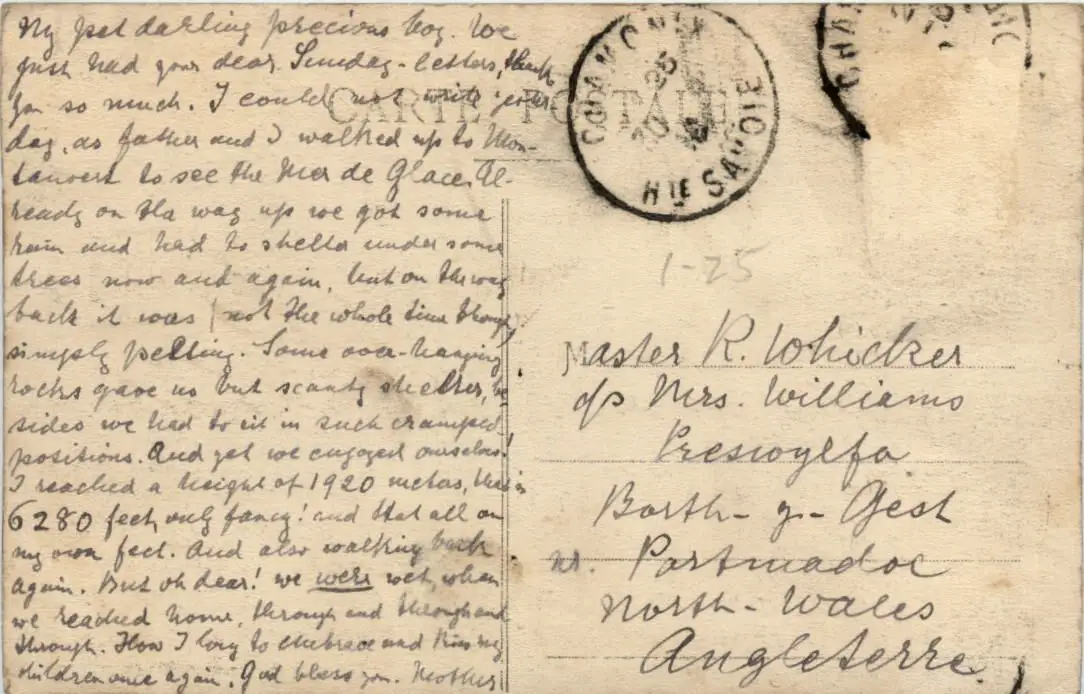 My pet darling precious boy. We
just had your dear Sunday-letters, thank
you so much. I could not write yester
day, as father and I walked up to Mon-
tanvert to see the Mer de Glace. Al-
ready on the way up we got some
rain and had to shelter under some
trees now and again, but on the way
back it was (not the whole time though)
simply pelting. Some over-hanging
rocks gave us but scanty shelter, be
sides we had to sit in such cramped
positions. And yet we enjoyed ourselves!
I reached a height of 1920 metres, that is
6280 feet, only fancy! and that all on
my own feet. And also walking back
again. But oh dear! we were wet, when
we reached home, through and through and
through. How I long to embrace and kiss my
children once again. God bless you. Mother
CARTE POSTALE
CHAMONIX
25
HTE SAVOIE
CHAM
1-25
Master R. Whicker
c/o Mrs. Williams
Preswylfa
Borth-y-Gest
nr. Portmadoc
North-Wales
Angleterre